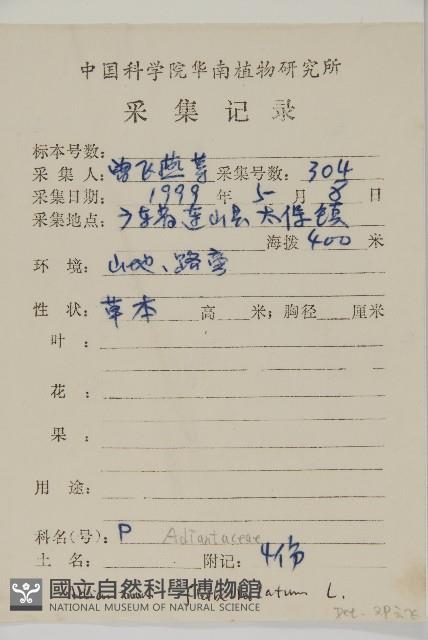 中国科学院华南植物研究所
采集记录
标本号数:
采集人: 曾飞燕等 采集号数: 304
采集日期: 1999 年 5 月 8 日
采集地点: 广东省连山县太保镇
海拨 400 米
环境: 山地、路旁
性状: 草本 高 米; 胸径 厘米
叶:
花:
果:
用途:
科名(号): P Adiantaceae
土名: 附记: 4份
國立自然科學博物館
NATIONAL MUSEUM OF NATURAL SCIENCE
L.
Det.